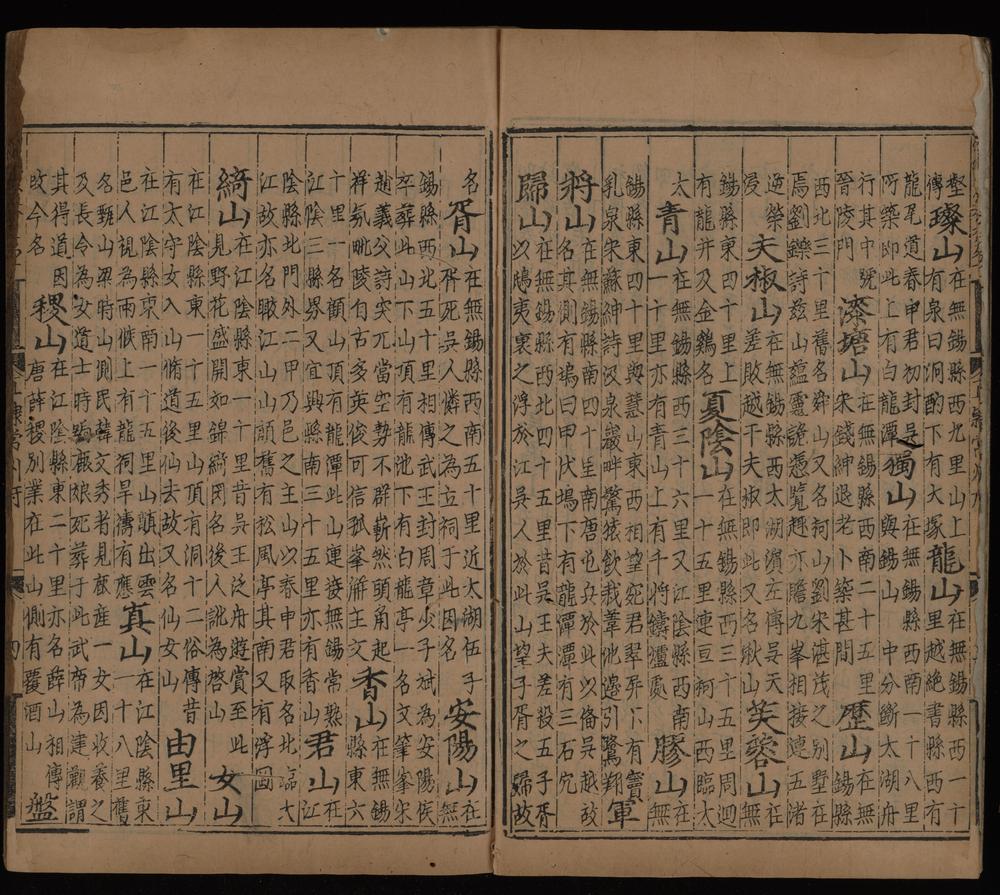 壑
傳
璨山
在無錫縣西九里山上
有泉曰洞酌下有大塚
龍山
在無錫縣西一十
里越絕書縣西有
龍尾道春申君初封吳之
所築即此上有白龍潭
獨山
在無錫縣西南一十八里
與錫山中分斷太湖舟
行其中號
晉陵門
漆塘山
在無錫縣西南二十五里
宋錢紳退老卜築甚閒
歷山
在無
錫縣
西北三十里舊名舜山又名祠山劉宋湛茂之別墅在
焉劉鑠詩茲山蘊靈詭憑覽趣亦贍九峯相接連五渚
迤縈
浸
夫椒山
在無錫縣西太湖濱左傳吳夫
差敗越于夫椒即此又名湫山
芙蓉山
在
無
錫縣東四十里上
有龍井及金鷄名
夏陰山
在無錫縣西三十五里周迴
一十五里連亘軻山西臨太
太
青山
在無錫縣西三十六里又江陰縣西南
一十里亦有青山上有千將鑄爐處
膠山
在
無
錫縣東四十里與慧山東西相望宛君翠屏下有竇
乳泉宋蘇紳詩汲泉巖畔驚猿飲我葦池邊引鷺翔
軍
將山
在無錫縣南四十里南唐屯兵於此以備吳越故
名其側有塢曰甲伏塢下有龍潭潭有三石穴
歸山
在無錫縣西北四十五里昔吳王夫差殺五子胥
以鴟夷裹之浮於江吳人於此山望子胥之歸故
名
胥山
在無錫縣西南五十里近太湖伍子
胥死吳人憐之為立祠于此因名
安陽山
在
無
錫縣西北五十里相傳武王封周章少子斌為安陽侯
卒葬此山下山頂有龍池下有白龍亭一名文筆峯宋
趙羲父詩突兀當空勢不群嶄然頭角起
祥氛毗陵自古多英俊可信孤峯瀚主文
香山
在無錫
縣東六
十里一名顧山多有龍潭此山連接無錫常熟
江陰三縣界又宜興縣南三十五里亦有香山
君山
在
江
陰縣北門外二甲乃邑之主山以春申君取名北臨大
江故亦名瞰江山山頂舊有松風亭其南又有浮圖
綺山
在江陰縣東一十里昔吳王泛舟遊賞至此
見野花盛開如錦綺因名後人訛為啓山
女山
在江陰縣東一十五里山頂有洞十二俗傳昔
有太守女入山脩道後仙去故又名仙女山
由里山
在江陰縣東南一十五里山巔出雲
邑人視為雨候上有龍祠旱禱有應
真山
在江陰縣東
一十八里舊
名雞山梁時山側民韓文秀者見鹿産一女因收養之
及長令為女道士時號鹿娘死葬于此武帝為建觀謂
其得道因
改今名
稷山
在江陰縣東二十里亦名薛山相傳
唐薛稷別業在此山側有覆酒山
盤